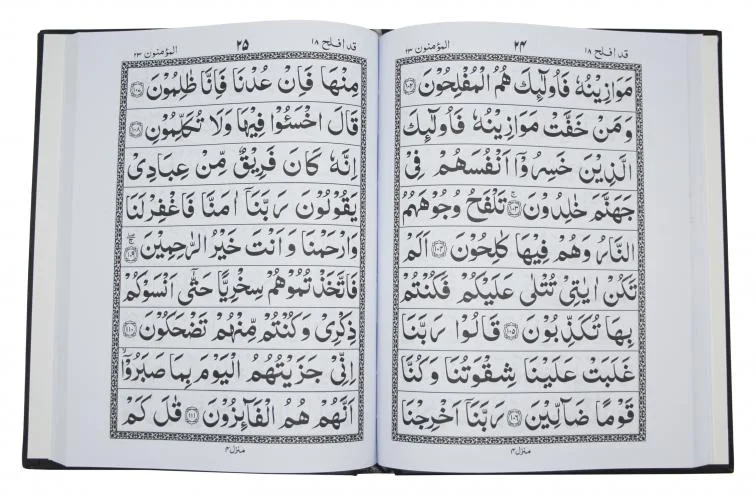 قد افلح ١٨
٢٤
المؤمنون ٢٣
مَوَازِيْنُهٗ فَاُولٰٓئِكَ هُمُ الْمُفْلِحُوْنَ ﴿١٠٢﴾
وَمَنْ خَفَّتْ مَوَازِيْنُهٗ فَاُولٰٓئِكَ
الَّذِيْنَ خَسِرُوْۤا اَنْفُسَهُمْ فِيْ
جَهَنَّمَ خٰلِدُوْنَ ﴿١٠٣﴾ تَلْفَحُ وُجُوْهَهُمُ
النَّارُ وَهُمْ فِيْهَا كٰلِحُوْنَ ﴿١٠٤﴾ اَلَمْ
تَكُنْ اٰيٰتِيْ تُتْلٰى عَلَيْكُمْ فَكُنْتُمْ
بِهَا تُكَذِّبُوْنَ ﴿١٠٥﴾ قَالُوْا رَبَّنَا
غَلَبَتْ عَلَيْنَا شِقْوَتُنَا وَكُنَّا
قَوْمًا ضَآلِّيْنَ ﴿١٠٦﴾ رَبَّنَاۤ اَخْرِجْنَا
منزل ٤
قد افلح ١٨
٢٥
المؤمنون ٢٣
مِنْهَا فَاِنْ عُدْنَا فَاِنَّا ظٰلِمُوْنَ ﴿١٠٧﴾
قَالَ اخْسَـُٔوْا فِيْهَا وَلَا تُكَلِّمُوْنِ ﴿١٠٨﴾
اِنَّهٗ كَانَ فَرِيْقٌ مِّنْ عِبَادِيْ
يَقُوْلُوْنَ رَبَّنَاۤ اٰمَنَّا فَاغْفِرْ لَنَا
وَارْحَمْنَا وَاَنْتَ خَيْرُ الرّٰحِمِيْنَ ﴿١٠٩﴾
فَاتَّخَذْتُمُوْهُمْ سِخْرِيًّا حَتّٰۤى اَنْسَوْكُمْ
ذِكْرِيْ وَكُنْتُمْ مِّنْهُمْ تَضْحَكُوْنَ ﴿١١٠﴾
اِنِّيْ جَزَيْتُهُمُ الْيَوْمَ بِمَا صَبَرُوْۤا
اَنَّهُمْ هُمُ الْفَآئِزُوْنَ ﴿١١١﴾ قٰلَ كَمْ
منزل ٤